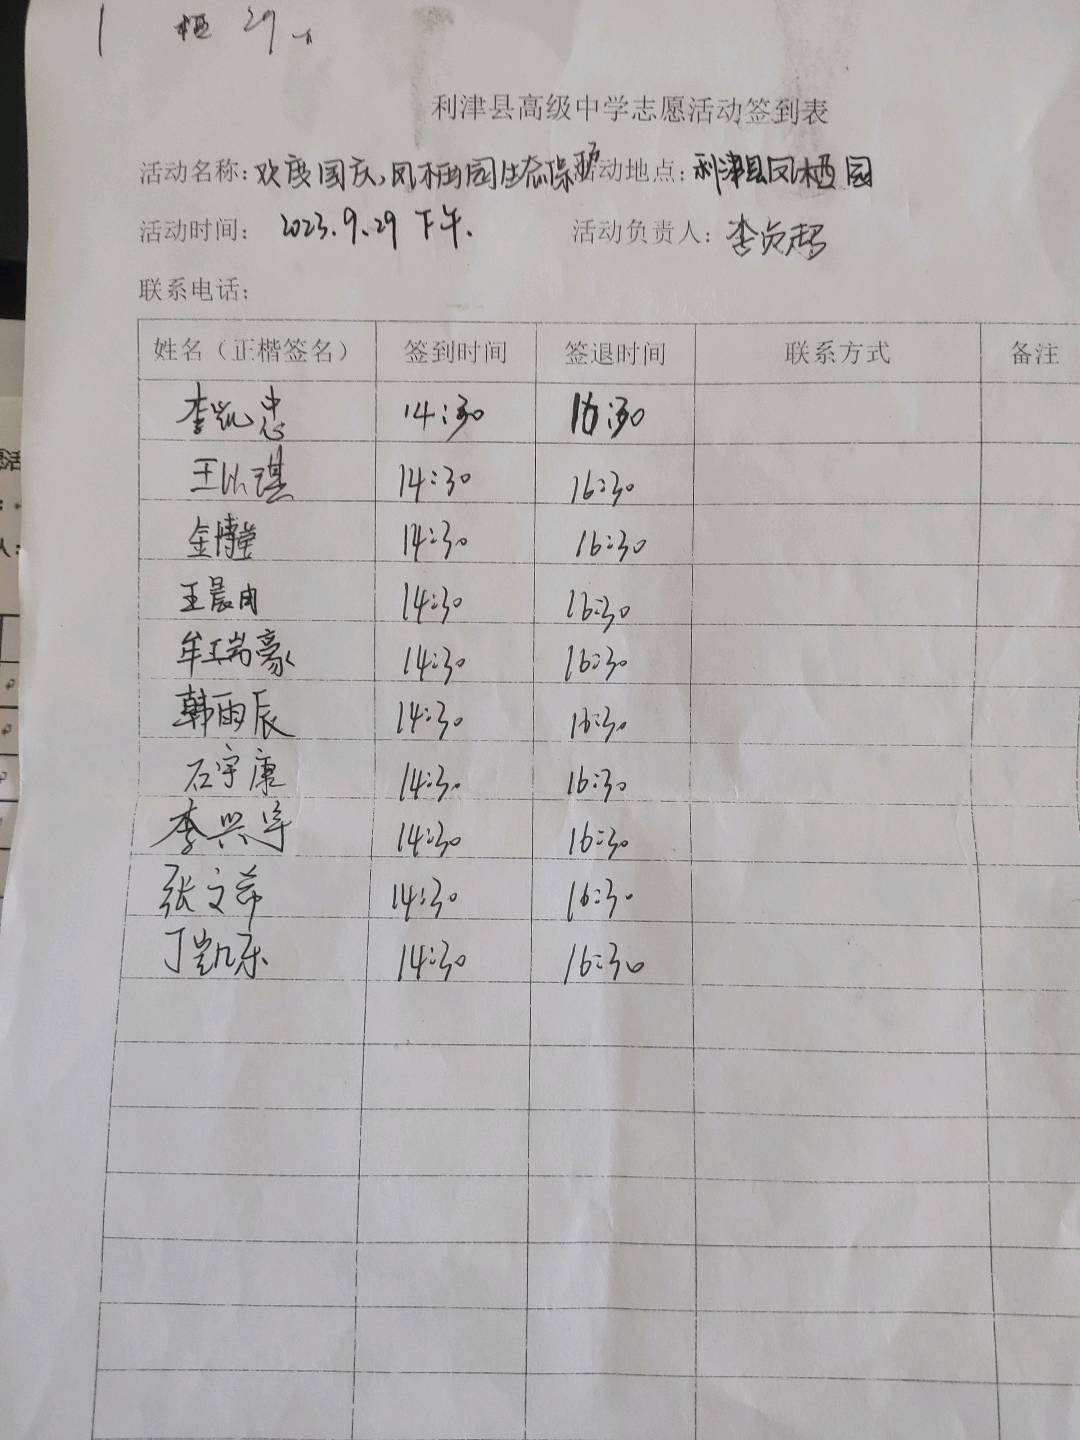 栖 29
利津县高级中学志愿活动签到表
活动名称：欢度国庆，凤栖园生态保护 活动地点：利津县凤栖园
活动时间： 2023.9.29 下午. 活动负责人：李贞超
联系电话：
姓名（正楷签名） 签到时间 签退时间 联系方式 备注
李凯忠 14:30 16:30
王 琪 14:30 16:30
金博莹 14:30 16:30
王晨冉 14:30 16:30
牟瑞豪 14:30 16:30
韩雨辰 14:30 16:30
石宇康 14:30 16:30
李兴宇 14:30 16:30
张文茹 14:30 16:30
丁凯乐 14:30 16:30